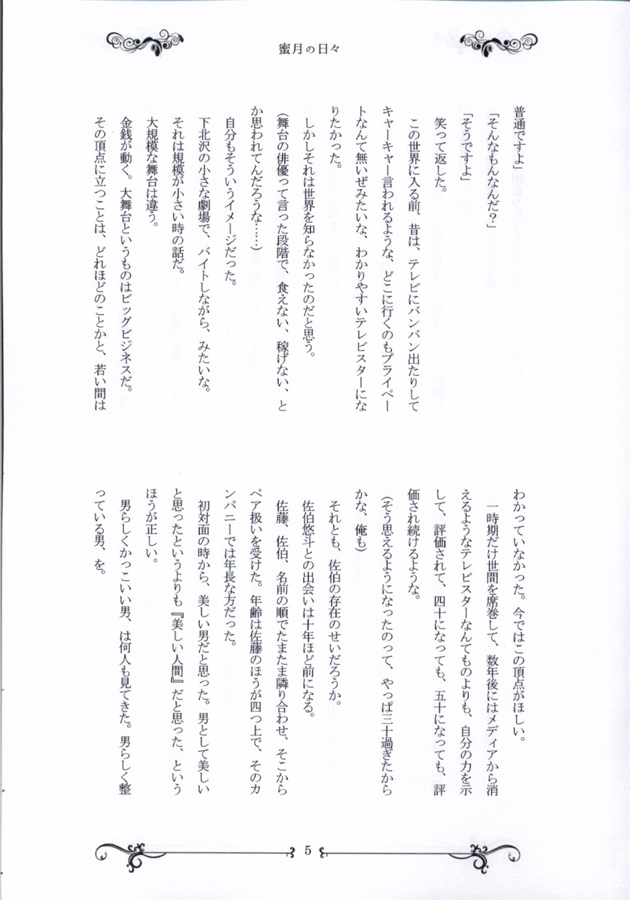 蜜月の日々
普通ですよ」
「そんなもんなんだ?」
「そうですよ」
笑って返した。
この世界に入る前、昔は、テレビにバンバン出たりして
キャーキャー言われるような、どこに行くのもプライベー
トなんて無いぜみたいな、わかりやすいテレビスターにな
りたかった。
しかしそれは世界を知らなかったのだと思う。
(舞台の俳優って言った段階で、食えない、稼げない、と
か思われてんだろうな……)
自分もそういうイメージだった。
下北沢の小さな劇場で、バイトしながら、みたいな。
それは規模が小さい時の話だ。
大規模な舞台は違う。
金銭が動く。大舞台というものはビッグビジネスだ。
その頂点に立つことは、どれほどのことかと、若い間は
わかっていなかった。今ではこの頂点がほしい。
一時期だけ世間を席巻して、数年後にはメディアから消
えるようなテレビスターなんてものよりも、自分の力を示
して、評価されて、四十になっても、五十になっても、評
価され続けるような。
(そう思えるようになったのって、やっぱ三十過ぎたから
かな、俺も)
それとも、佐伯の存在のせいだろうか。
佐伯悠斗との出会いは十年ほど前になる。
佐藤、佐伯、名前の順でたまたま隣り合わせ、そこから
ペア扱いを受けた。年齢は佐藤のほうが四つ上で、そのカ
ンパニーでは年長な方だった。
初対面の時から、美しい男だと思った。男として美しい
と思ったというよりも『美しい人間』だと思った、という
ほうが正しい。
男らしくかっこいい男、は何人も見てきた。男らしく整
っている男、を。
5